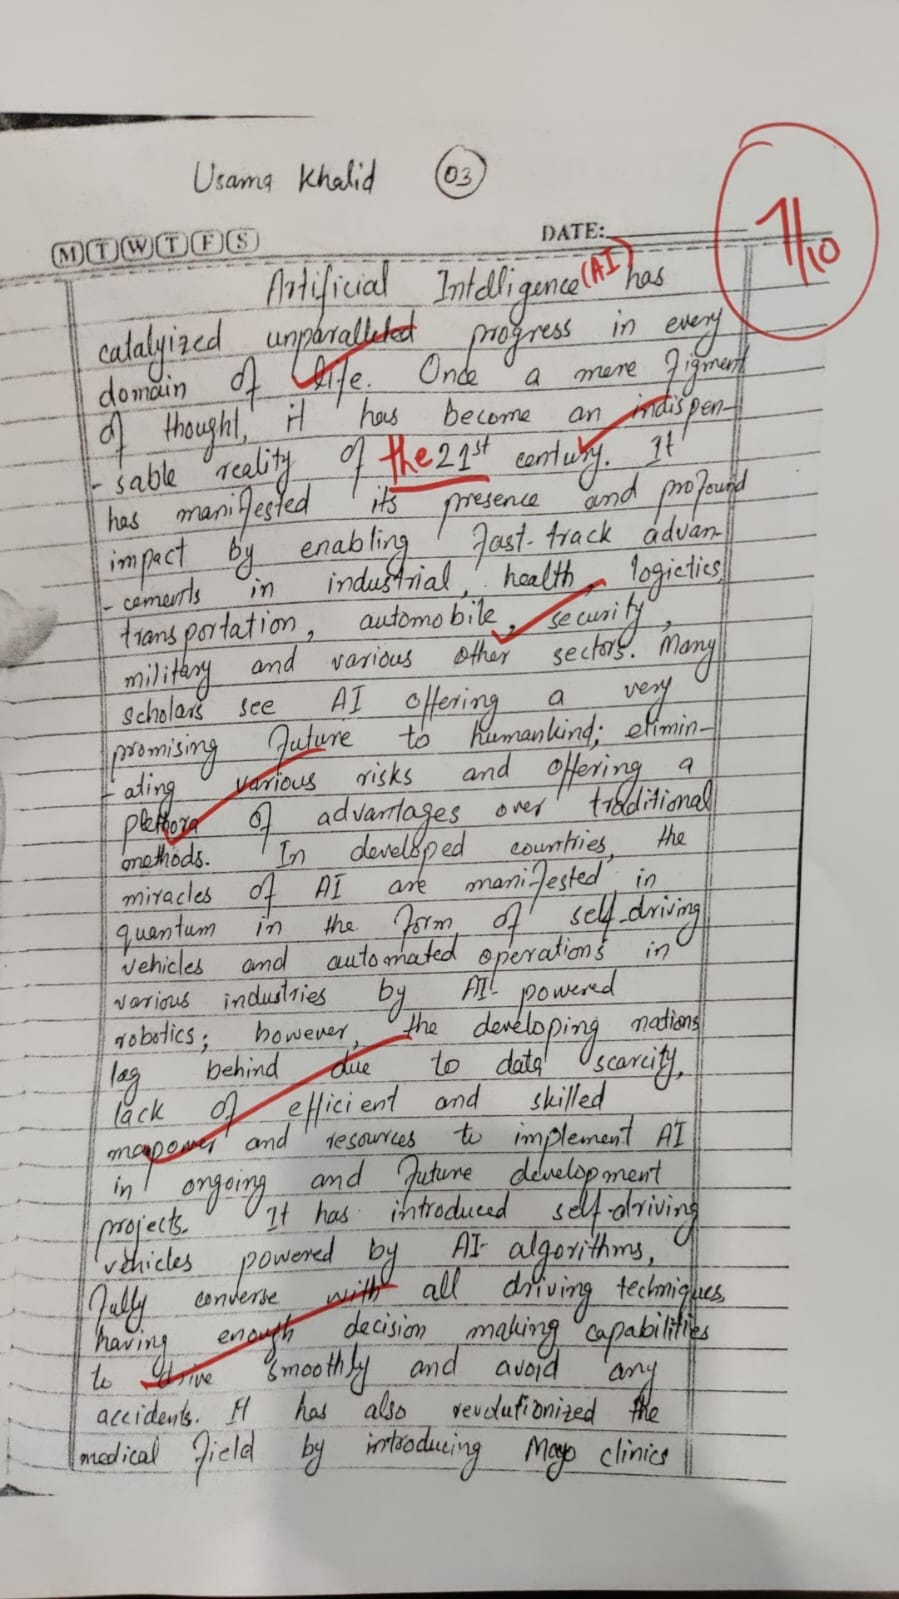 Usama Khalid 03
M T W T F S DATE:
7/10
Artificial Intelligence (AI) has
catalyized unparalleled progress in every
domain of life. Once a mere figment
of thought, it has become an indispen-
- sable reality of the 21st century. It
has manifested its presence and profound
impact by enabling fast-track advan-
- cements in industrial, health, logictics,
transportation, automobile, security,
military and various other sectors. Many
scholars see AI offering a very
promising future to humankind; elimin-
- ating various risks and offering a
plethora of advantages over traditional
methods. In developed countries, the
miracles of AI are manifested in
quantum in the form of self-driving
vehicles and automated operations in
various industries by AI-powered
robotics; however, the developing nations
lag behind due to data scarcity,
lack of efficient and skilled
manpower and resources to implement AI
in ongoing and future development
projects. It has introduced self-driving
vehicles powered by AI-algorithms,
fully converse with all driving techniques,
having enough decision making capabilities
to drive smoothly and avoid any
accidents. It has also revolutionized the
medical field by introducing Mayo clinics